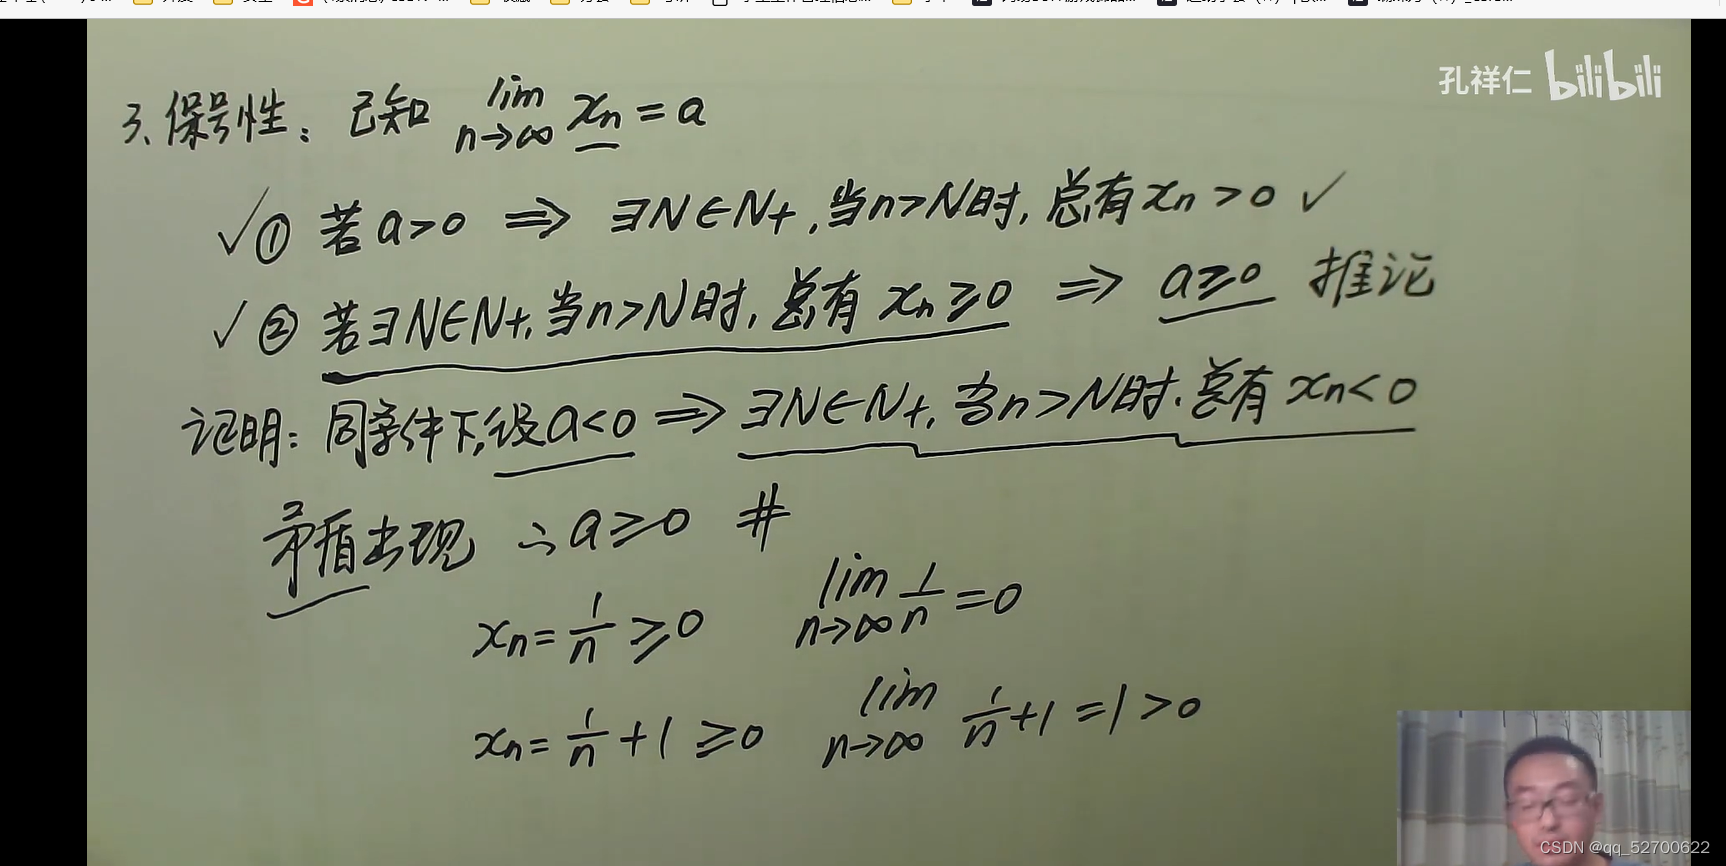 孔祥仁 bilibili
3、保号性：已知 lim n→∞ xn = a
✓① 若 a>0 ⇒ ∃N∈N+，当n>N时，总有 xn>0 ✓
✓② 若∃N∈N+，当n>N时，总有 xn≥0 ⇒ a≥0 推论
证明：同条件下，设a<0 ⇒ ∃N∈N+，当n>N时，总有 xn<0
矛盾出现 ∴a≥0 #
xn = 1/n ≥0 lim n→∞ 1/n =0
xn = 1/n +1 ≥0 lim n→∞ 1/n +1 =1>0
CSDN @qq_52700622